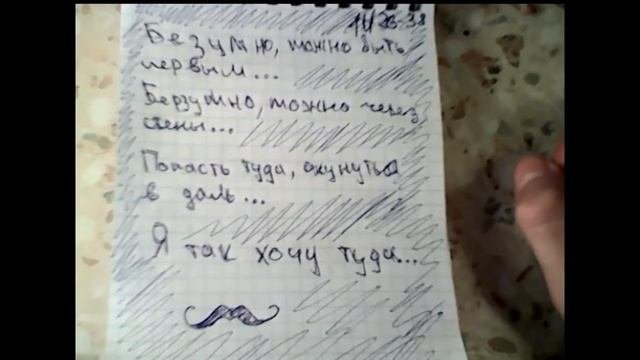 Безумно, можно быть
первым...
Берзумно, можно через
стены...
Попасть туда, окунуться
в даль...
Я так хочу туда...